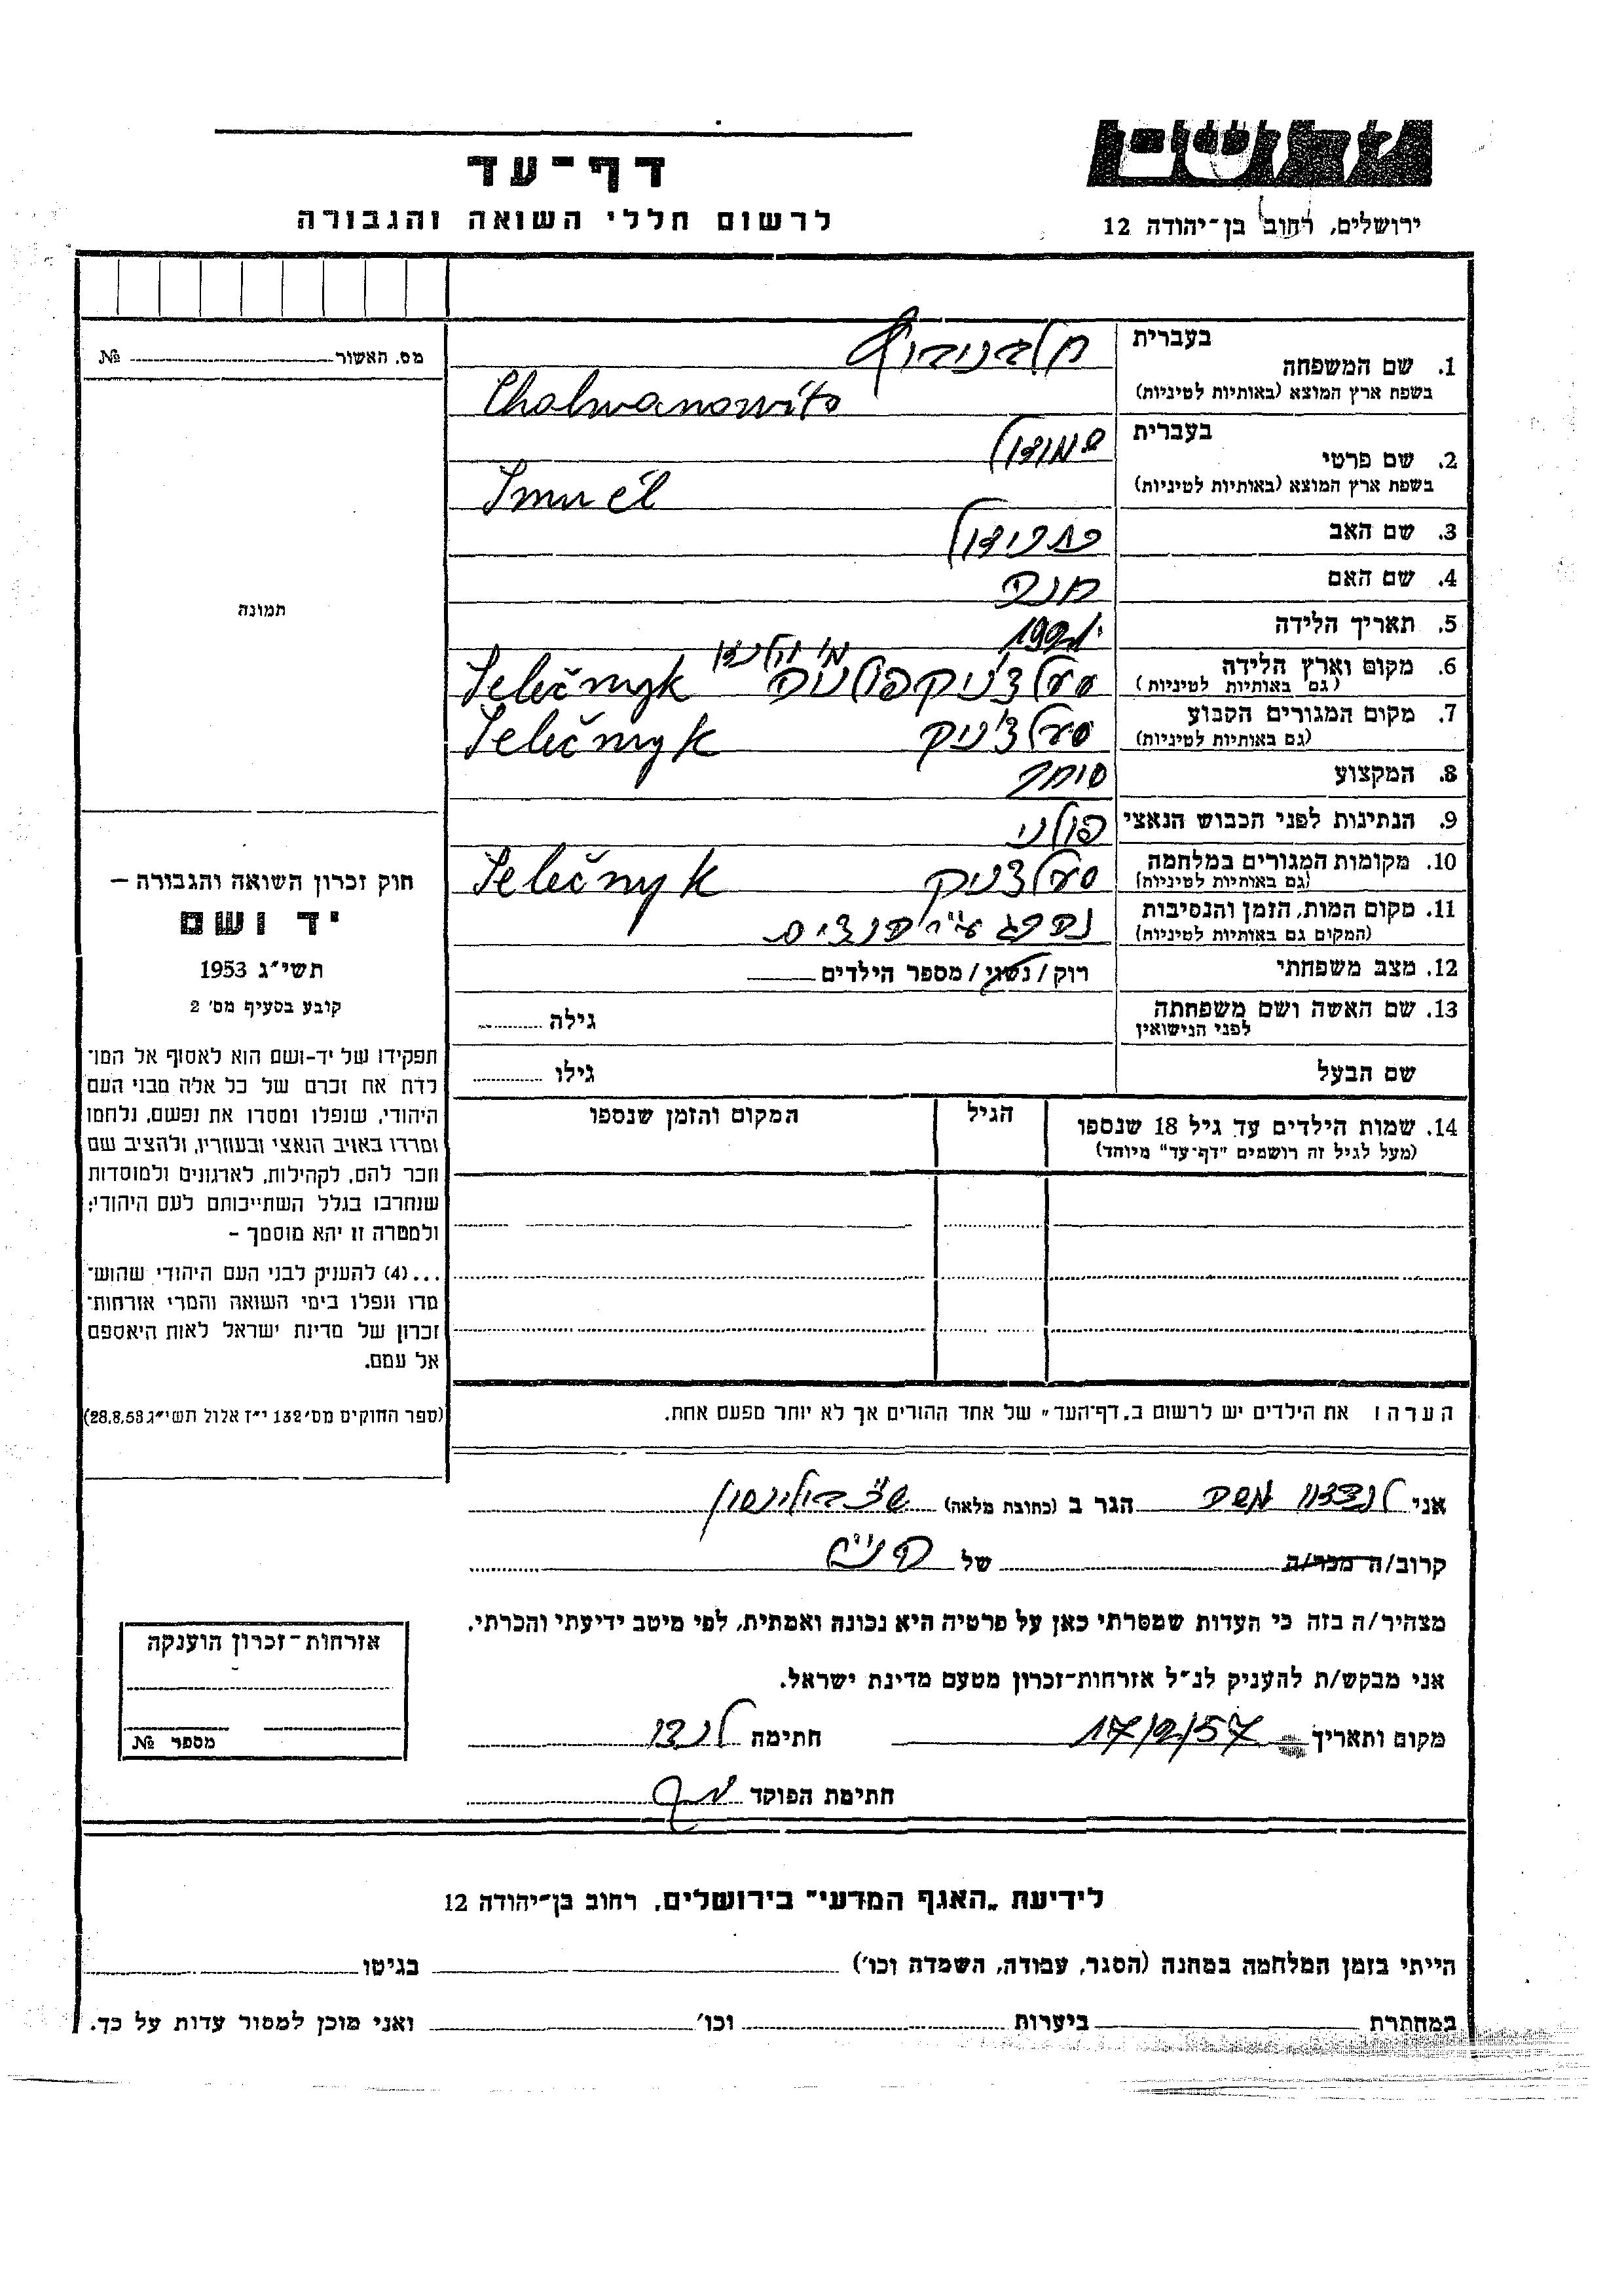 יד ושם
דף-עד
לרשום חללי השואה והגבורה
ירושלים, רחוב בן-יהודה 12
1. שם המשפחה בעברית
בשפת ארץ המוצא (באותיות לטיניות) Cholwanowits
2. שם פרטי בעברית שמואל
בשפת ארץ המוצא (באותיות לטיניות) Smuel
3. שם האב
4. שם האם
5. תאריך הלידה
6. מקום וארץ הלידה
(גם באותיות לטיניות) Selečnyk
7. מקום המגורים הקבוע סעלצ׳ניק Selečnyk
(גם באותיות לטיניות)
8. המקצוע סוחר
9. הנתינות לפני הכבוש הנאצי פולני
10. מקומות המגורים במלחמה סעלצניק Selečnyk
(גם באותיות לטיניות)
11. מקום המות, הזמן והנסיבות
(המקום גם באותיות לטיניות)
12. מצב משפחתי רוק/נשוי/מספר הילדים
13. שם האשה ושם משפחתה גילה
לפני הנישואין
שם הבעל גילו
14. שמות הילדים עד גיל 18 שנספו הגיל המקום והזמן שנספו
(מעל לגיל זה רושמים "דף-עד" מיוחד)
הערה: את הילדים יש לרשום ב„דף-העד" של אחד ההורים אך לא יותר מפעם אחת.
מס. האשור №
תמונה
חוק זכרון השואה והגבורה –
יד ושם
תשי"ג 1953
קובע בסעיף מס' 2
תפקידו של יד-ושם הוא לאסוף אל המו־
לדת את זכרם של כל אלה מבני העם
היהודי, שנפלו ומסרו את נפשם, נלחמו
ומרדו באויב הנאצי ובעוזריו, ולהציב שם
וזכר להם, לקהילות, לארגונים ולמוסדות
שנחרבו בגלל השתייכותם לעם היהודי;
ולמטרה זו יהא מוסמך –
...(4) להעניק לבני העם היהודי שהוש־
מדו ונפלו בימי השואה והמרי אזרחות־
זכרון של מדינת ישראל לאות היאספם
אל עמם.
(ספר החוקים מס' 132 י"ז אלול תשי"ג 28.8.53)
אני הגר ב (כתובת מלאה)
קרוב/ה מכר/ה של
מצהיר/ה בזה כי העדות שמסרתי כאן על פרטיה היא נכונה ואמתית, לפי מיטב ידיעתי והכרתי.
אני מבקש/ת להעניק לנ"ל אזרחות-זכרון מטעם מדינת ישראל.
מקום ותאריך 17/2/57 חתימה
חתימת הפוקד
אזרחות-זכרון הוענקה
מספר №
לידיעת „האגף המדעי" בירושלים, רחוב בן-יהודה 12
הייתי בזמן המלחמה במחנה (הסגר, עבודה, השמדה וכו') בגיטו
במחתרת ביערות וכו' ואני מוכן למסור עדות על כך.